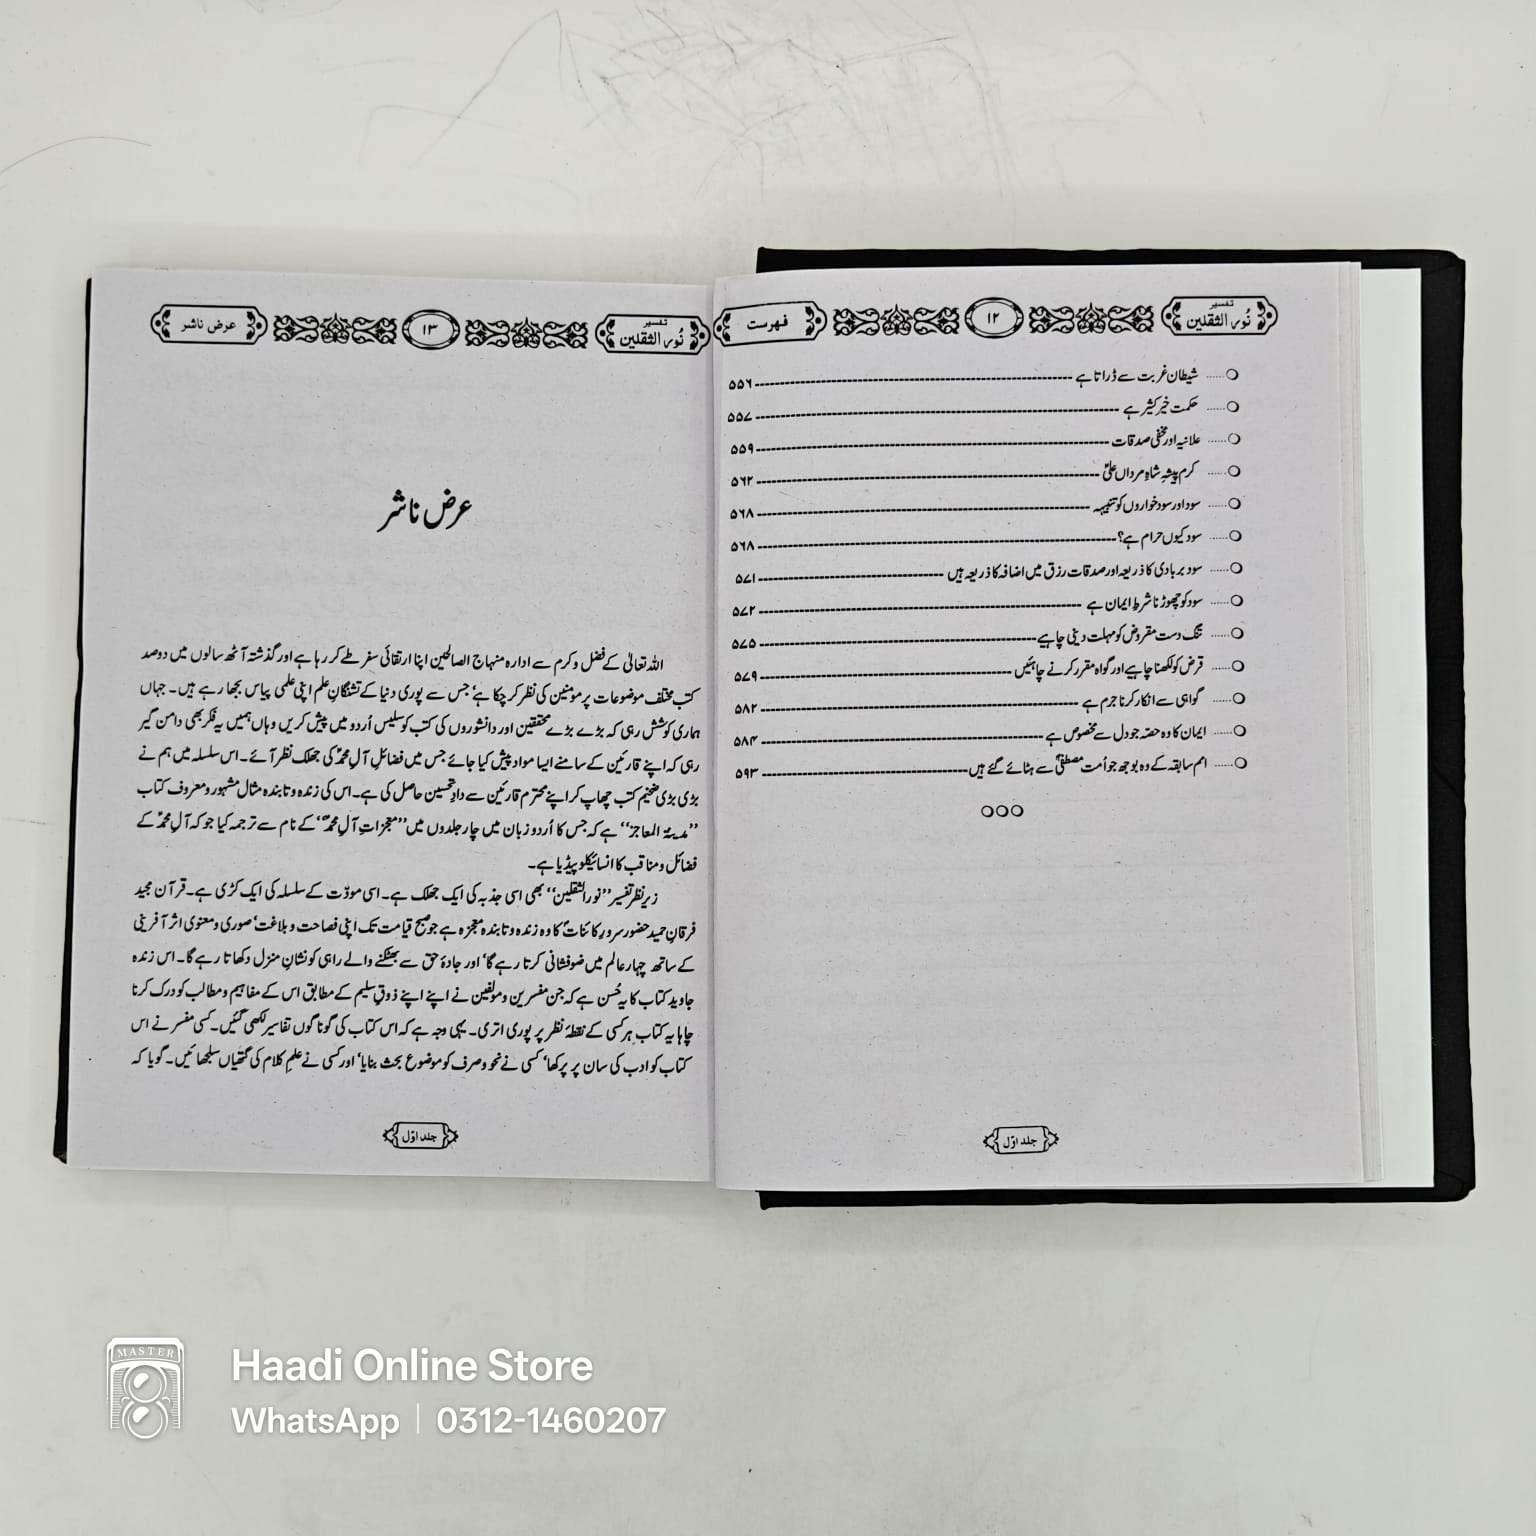 تفسیر
نُور الثقلین
۱۲
فہرست
شیطان غربت سے ڈراتا ہے ۵۵۶
حکمت خیر کثیر ہے ۵۵۷
علانیہ اور مخفی صدقات ۵۵۹
کرم پیشہِ شاہِ مرداں علیؑ ۵۶۲
سود اور سود خواروں کو تنبیہہ ۵۶۸
سود کیوں حرام ہے؟ ۵۶۸
سود بربادی کا ذریعہ اور صدقات رزق میں اضافہ کا ذریعہ ہیں ۵۷۱
سود کو چھوڑنا شرطِ ایمان ہے ۵۷۲
تنگ دست مقروض کو مہلت دینی چاہیے ۵۷۵
قرض کو لکھنا چاہیے اور گواہ مقرر کرنے چاہئیں ۵۷۹
گواہی سے انکار کرنا جرم ہے ۵۸۲
ایمان کا وہ حصّہ جو دل سے مخصوص ہے ۵۸۴
امم سابقہ کے وہ بوجھ جو اُمت مصطفیٰؐ سے ہٹائے گئے ہیں ۵۹۳
جلد اوّل
تفسیر
نُور الثقلین
۱۳
عرض ناشر
عرض ناشر
اللہ تعالیٰ کے فضل و کرم سے ادارہ منہاج الصالحین اپنا ارتقائی سفر طے کر رہا ہے اور گذشتہ آٹھ سالوں میں دو صد
کتب مختلف موضوعات پر مومنین کی نظر کر چکا ہے‘ جس سے پوری دنیا کے تشنگانِ علم اپنی علمی پیاس بجھا رہے ہیں۔ جہاں
ہماری کوشش رہی کہ بڑے بڑے محققین اور دانشوروں کی کتب کو سلیس اُردو میں پیش کریں وہاں ہمیں یہ فکر بھی دامن گیر
رہی کہ اپنے قارئین کے سامنے ایسا مواد پیش کیا جائے جس میں فضائلِ آلِ محمدؐ کی جھلک نظر آئے۔ اس سلسلہ میں ہم نے
بڑی بڑی ضخیم کتب چھاپ کر اپنے محترم قارئین سے دادِ تحسین حاصل کی ہے۔ اس کی زندہ و تابندہ مثال مشہور و معروف کتاب
”مدینۃ المعاجز“ ہے کہ جس کا اُردو زبان میں چار جلدوں میں ”معجزاتِ آلِ محمدؐ“ کے نام سے ترجمہ کیا جو کہ آلِ محمدؐ کے
فضائل و مناقب کا انسائیکلوپیڈیا ہے۔
زیرِ نظر تفسیر ”نور الثقلین“ بھی اسی جذبہ کی ایک جھلک ہے۔ اسی مودّت کے سلسلہ کی ایک کڑی ہے۔ قرآن مجید
فرقانِ حمید حضور سرورِ کائناتؐ کا وہ زندہ و تابندہ معجزہ ہے جو صبح قیامت تک اپنی فصاحت و بلاغت‘ صوری و معنوی اثر آفرینی
کے ساتھ چہار عالم میں ضوفشانی کرتا رہے گا‘ اور جادۂ حق سے بھٹکنے والے راہی کو نشانِ منزل دکھاتا رہے گا۔ اس زندہ
جاوید کتاب کا یہ حُسن ہے کہ جن مفسرین و مولفین نے اپنے اپنے ذوقِ سلیم کے مطابق اس کے مفاہیم و مطالب کو درک کرنا
چاہا یہ کتاب ہر کسی کے نقطۂ نظر پر پوری اتری۔ یہی وجہ ہے کہ اس کتاب کی گوناگوں تفاسیر لکھی گئیں۔ کسی مفسر نے اس
کتاب کو ادب کی سان پر پرکھا‘ کسی نے نحو و صرف کو موضوع بحث بنایا‘ اور کسی نے علمِ کلام کی گتھیاں سلجھائیں۔ گویا کہ
جلد اوّل
MASTER
Haadi Online Store
WhatsApp | 0312-1460207